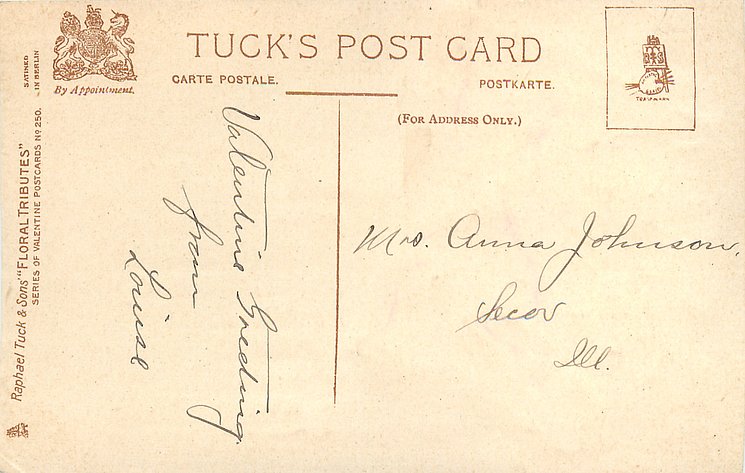 TUCK'S POST CARD
CARTE POSTALE.
POSTKARTE.
(FOR ADDRESS ONLY.)
By Appointment.
SATINED
IN BERLIN
Raphael Tuck & Sons' "FLORAL TRIBUTES"
SERIES OF VALENTINE POSTCARDS Nº 250.
TRADE MARK
Valentine Greeting
from
Louise
Mrs. Anna Johnson,
Secor
Ill.